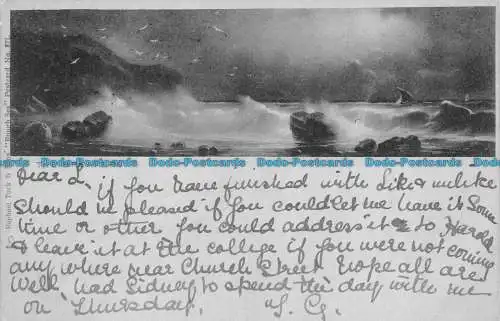 Raphael Tuck & "Rough Sea" Postcard No. 871
Bobs-Postcards Bobs-Postcards Bobs-Postcards Bobs-Postcards Bobs-Postcards
Dear L. if you have finished with Like & unlike
should be pleased if you could let me have it some
time or other you could address it to Harold
& leave it at the college if you were not coming
any where near Church Street hope all are
well, had Sidney to spend the day with me
on Thursday. S. G.